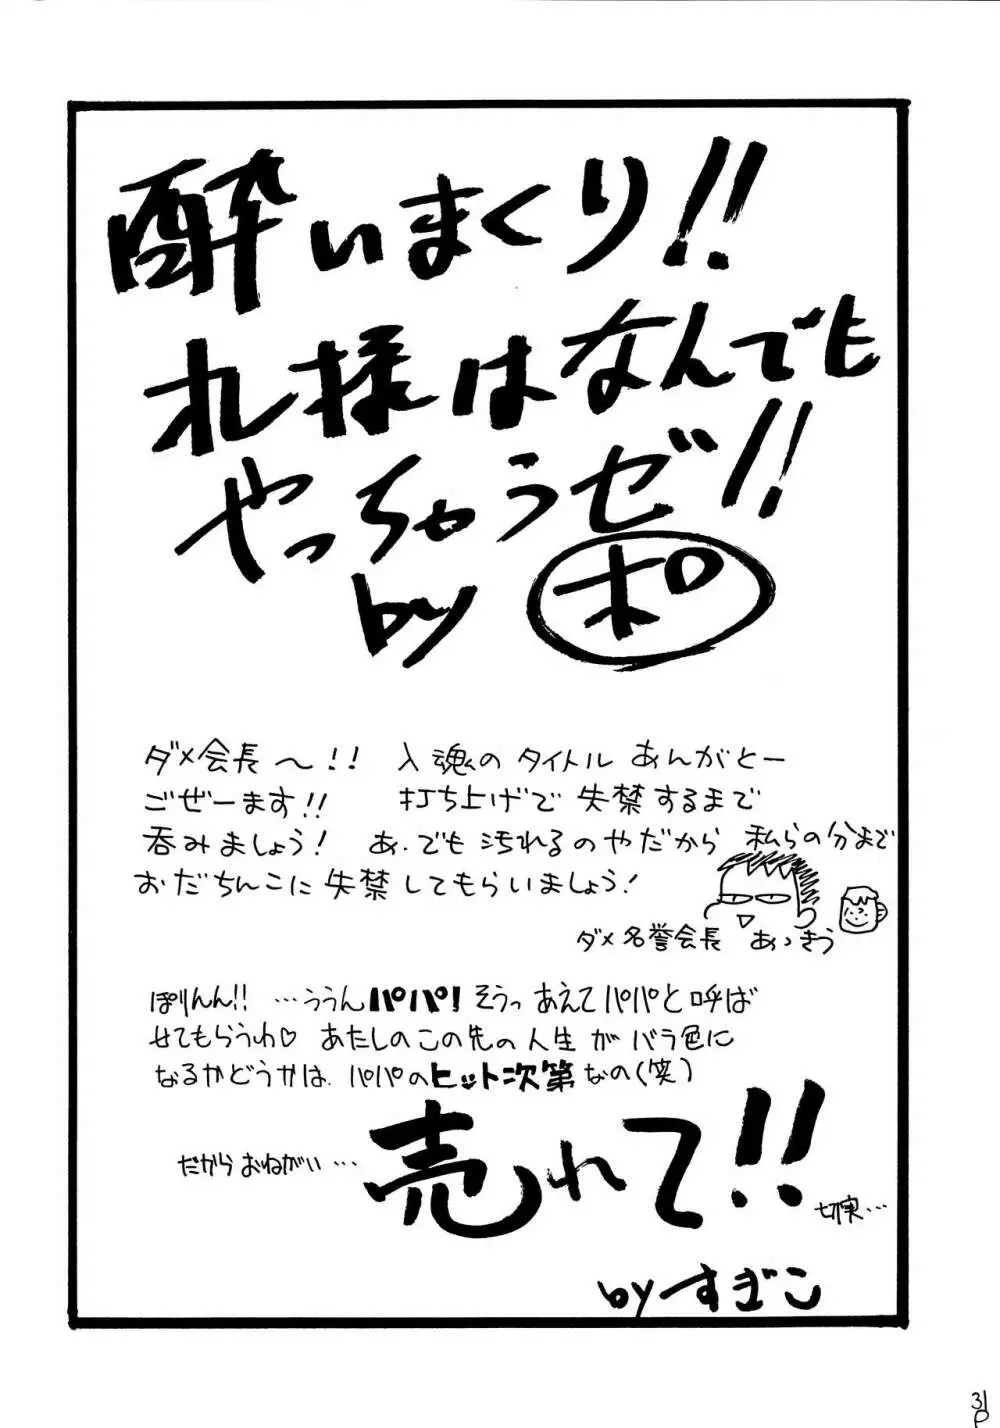 酔いまくり!!
れ様はなんでも
やっちゃうゼ!!
by ポ
ダメ会長〜!! 入魂のタイトル あんがとー
ごぜーます!! 打ち上げで 失禁するまで
呑みましょう! あ、でも汚れるのやだから 私らの分まで
おだちんこに 失禁してもらいましょう!
ダメ名誉会長 あっきう
ぽりんん!! …ううんパパ! そうっ あえてパパと呼ば
せてもらうわ♡ あたしのこの先の人生が バラ色に
なるかどうかは、パパのヒット次第なの(笑)
だから おねがい… 売れて!!
切実…
by すぎこ
31P